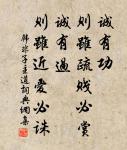 誠有功
則雖疏賤必賞
誠有過
則雖近愛必誅
韓非子主道詞典網集